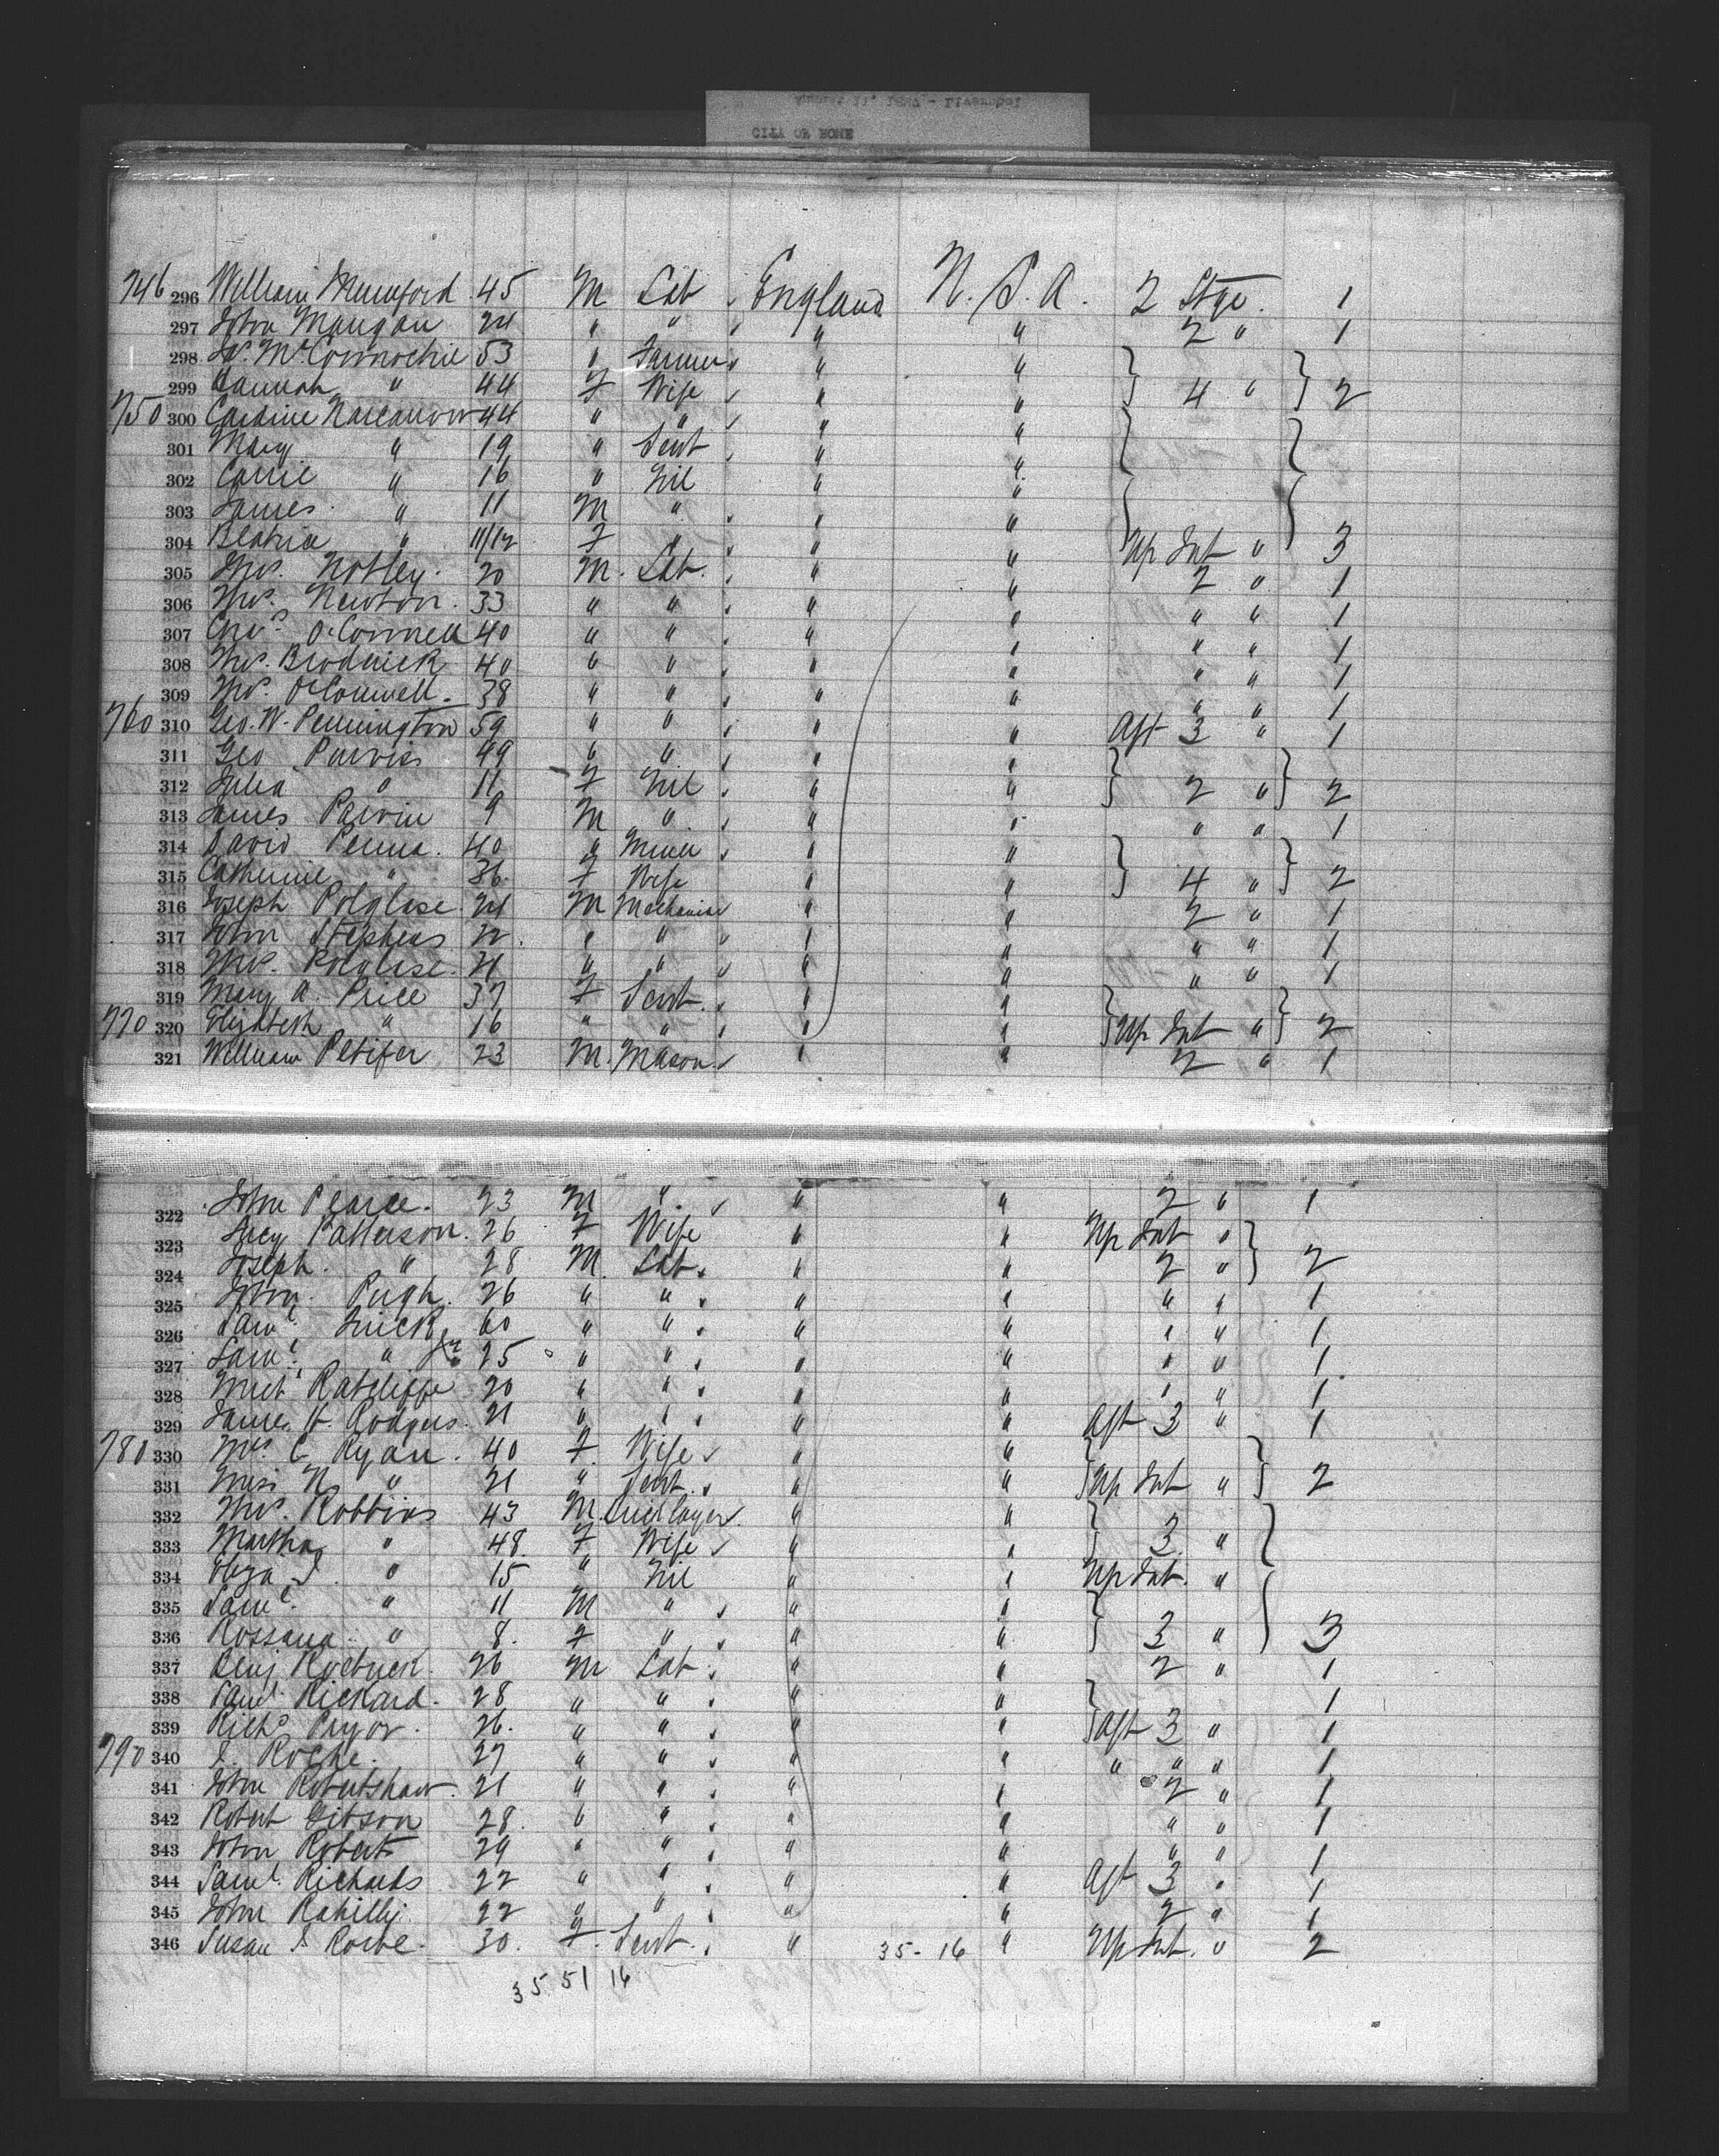 CITY OF ROME
746 296 William Mumford 45 M Lab England U.S.A. 2 Stge. 1
297 John Mangan 24 " " " " 2 " 1
298 53 " Farmer " "
299 Hannah " 44 F Wife " " 4 " 2
750 300 Caroline 44 " " " "
301 Mary " 19 " Servt " "
302 Carrie " 16 " Nil " "
303 James " 11 M " " "
304 " 11/12 F " " " Up Int " 3
305 Thos. Notley 20 M. Lab. " " 2 " 1
306 Thos. Newton. 33 " " " " " " 1
307 Chas. O'Connell 40 " " " " " " 1
308 Thos. Broderick 40 " " " " " " 1
309 Thos. O'Connell. 38 " " " " " " 1
760 310 Geo. W. Pennington 59 " " " " Aft 3 " 1
311 Geo Purvis 49 " " " "
312 Julia " 11 F Nil " " 2 " 2
313 James Parvin 9 M " " " " " 1
314 David Penna. 40 " Miner " "
315 Catherine " 36. F Wife " " 4 " 2
316 Joseph Polglase. 24 M Mechanic " " 2 " 1
317 John Stephens 22. " " " " " " 1
318 Thos. Polglase. 21 " " " " " " 1
319 Mary A. Price 37 F Servt. " "
770 320 Elizabeth " 16 " " " " Up Int " 2
321 William Petifer 23 M. Mason. " " 2 " 1
322 John Pearce. 23 M " " " 2 " 1
323 Lucy Patterson. 26 F Wife " " Up Int "
324 Joseph. " 28. M. Lab. " " 2 " 2
325 John. Pugh. 26 " " " " " " 1
326 Saml. Quick 60 " " " " " " 1
327 Saml. " Jr. 25 " " " " " " 1
328 Michl Ratcliffe 20 " " " " " " 1
329 James H. Rodgers. 21 " " " " Aft 3 " 1
780 330 Mrs. C Ryan. 40 F. Wife " "
331 Miss N. " 21 " Servt. " " Up Int " 2
332 Thos. Robbins 43 M. Bricklayer. " "
333 Martha " 48. F Wife " " 3. "
334 Eliza J. " 15 " Nil " " Up Int. "
335 Saml. " 11 M " " "
336 Rossana " 8. F " " " 3 " 3
337 Benj Roebuck. 26 M Lab. " " 2 " 1
338 Saml. Rickard. 28 " " " " 1
339 Richd Pryor. 26. " " " " Aft 3 " 1
790 340 J. Roche. 27 " " " " " " " 1
341 John Robertshaw. 21 " " " " 2 " 1
342 Robert Gibson 28. " " " " " " 1
343 John Roberts 29 " " " " " " 1
344 Saml. Richards 22 " " " " Aft 3 " 1
345 John Rahilly. 22 " " " " 2 " 1
346 Susan J. Roche. 30. F. Servt. " 35-16 " Up Int. " 2
35 51 16